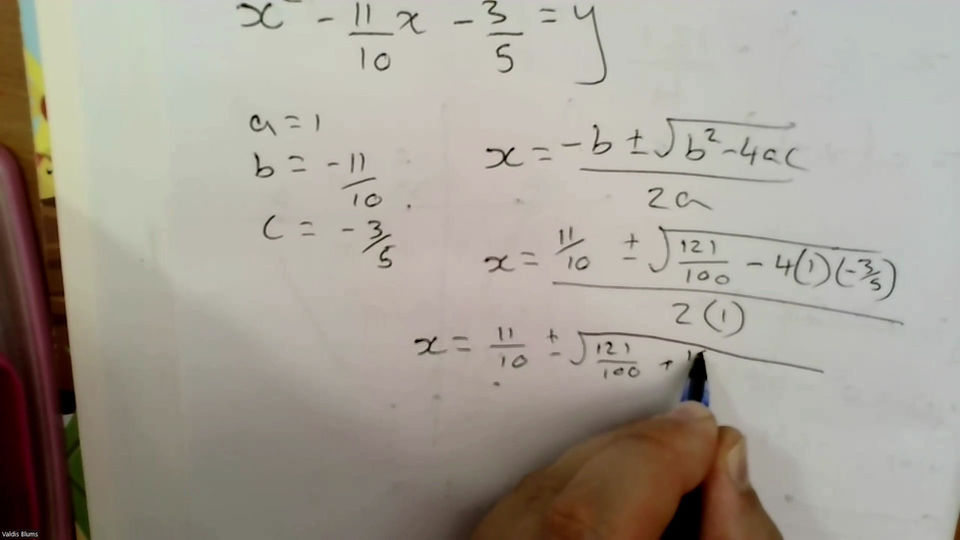 x² - 11/10 x - 3/5 = y
a = 1
b = -11/10
c = -3/5
x = -b ± √b² - 4ac / 2a
x = 11/10 ± √121/100 - 4(1)(-3/5) / 2(1)
x = 11/10 ± √121/100 + 1
Valdis Blums